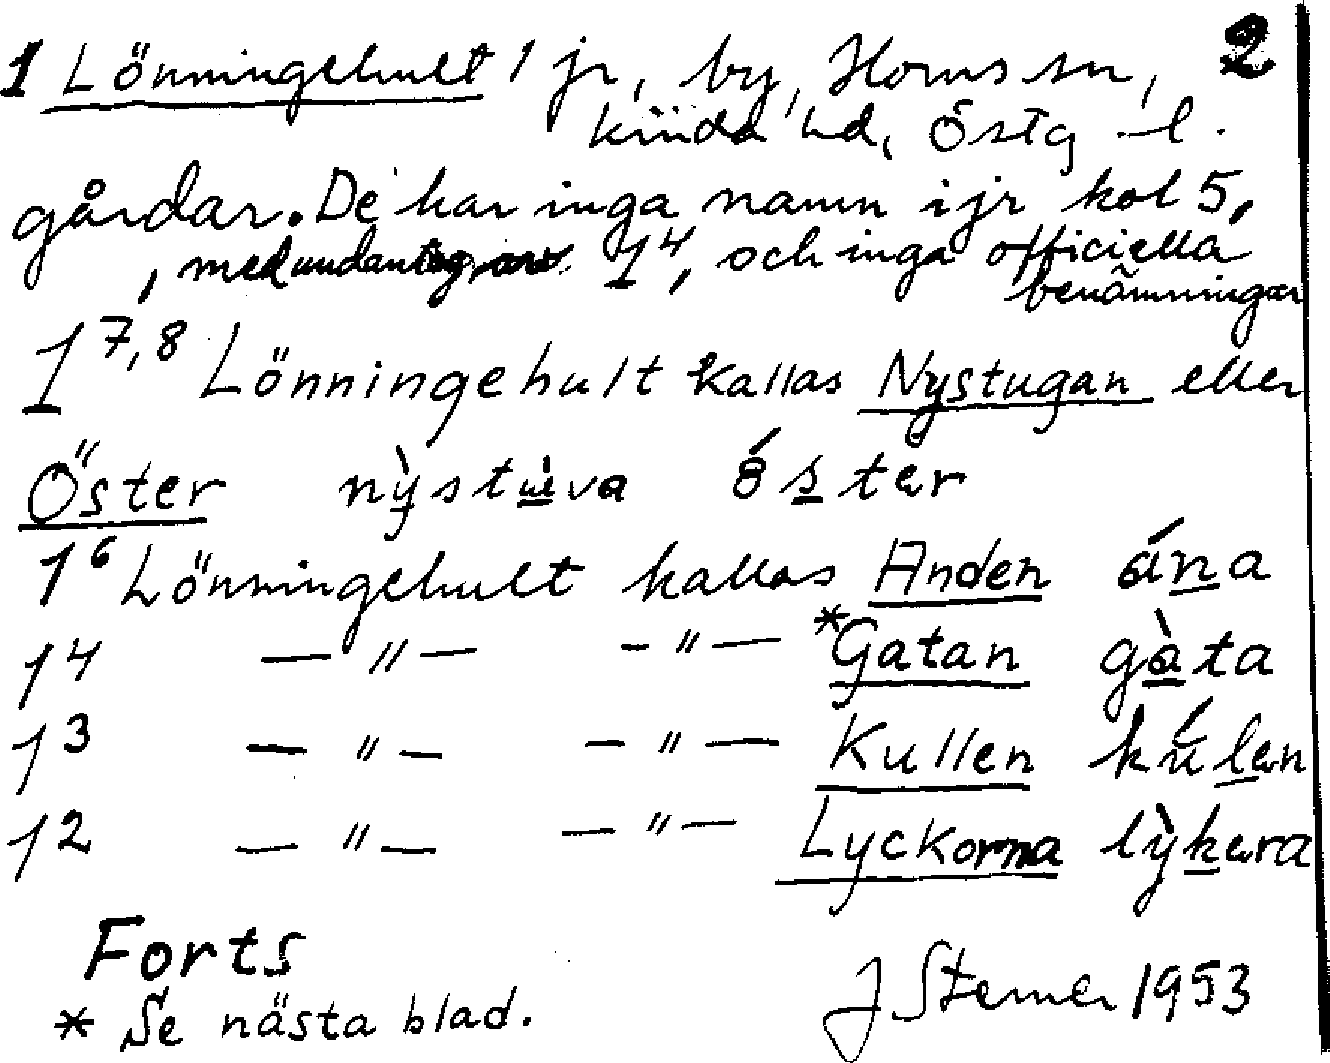 1 Lönningehult 1 jr, by, Horns sn, 2
Kinda hd, Östg. l.
gårdar. De har inga namn i jr kol 5,
, med undantag av 1⁴, och inga officiella
benämningar
1⁷,⁸ Lönningehult kallas Nystugan eller
Öster nỳstùva ö́ster
1⁶ Lönningehult kallas Anden ána
1⁴ — " — - " — *Gatan gàta
1³ — " — — " — Kullen kúlen
1² — " — — " — Lyckorna lỳkera
Forts
* Se nästa blad. J Sterner 1953